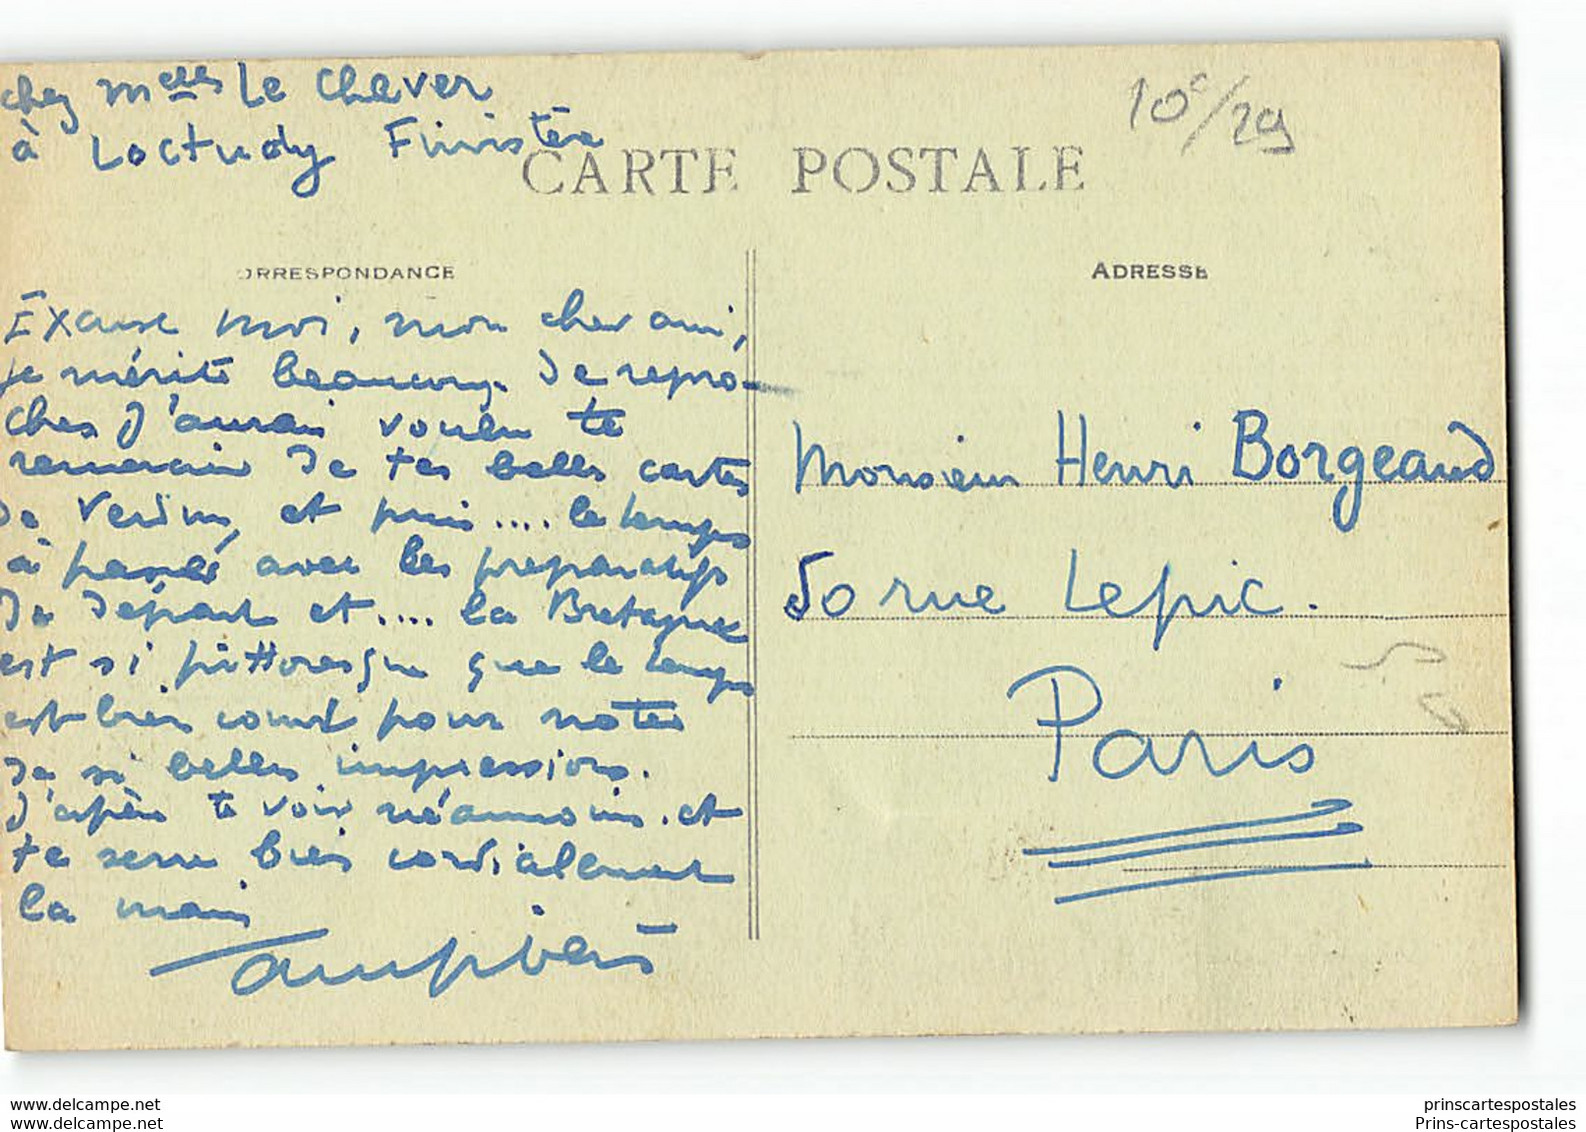 chez Melles Le Cléver
à Loctudy Finistère
CARTE POSTALE
10c/29
ORRESPONDANCE
ADRESSE
Excuse moi, mon cher ami,
je mérite beaucoup de repro-
ches J'aurais voulu te
remercier de tes belles cartes
de Verdun, et puis.... le temps
a passé avec les préparatifs
de départ et.... la Bretagne
est si pittoresque que le temps
est bien court pour noter
de si belles impressions.
J'espère te voir néanmoins. et
te serre bien cordialement
la main
Monsieur Henri Borgeaud
50 rue Lepic.
Paris
www.delcampe.net
www.delcampe.net
prinscartespostales
Prins-cartespostales